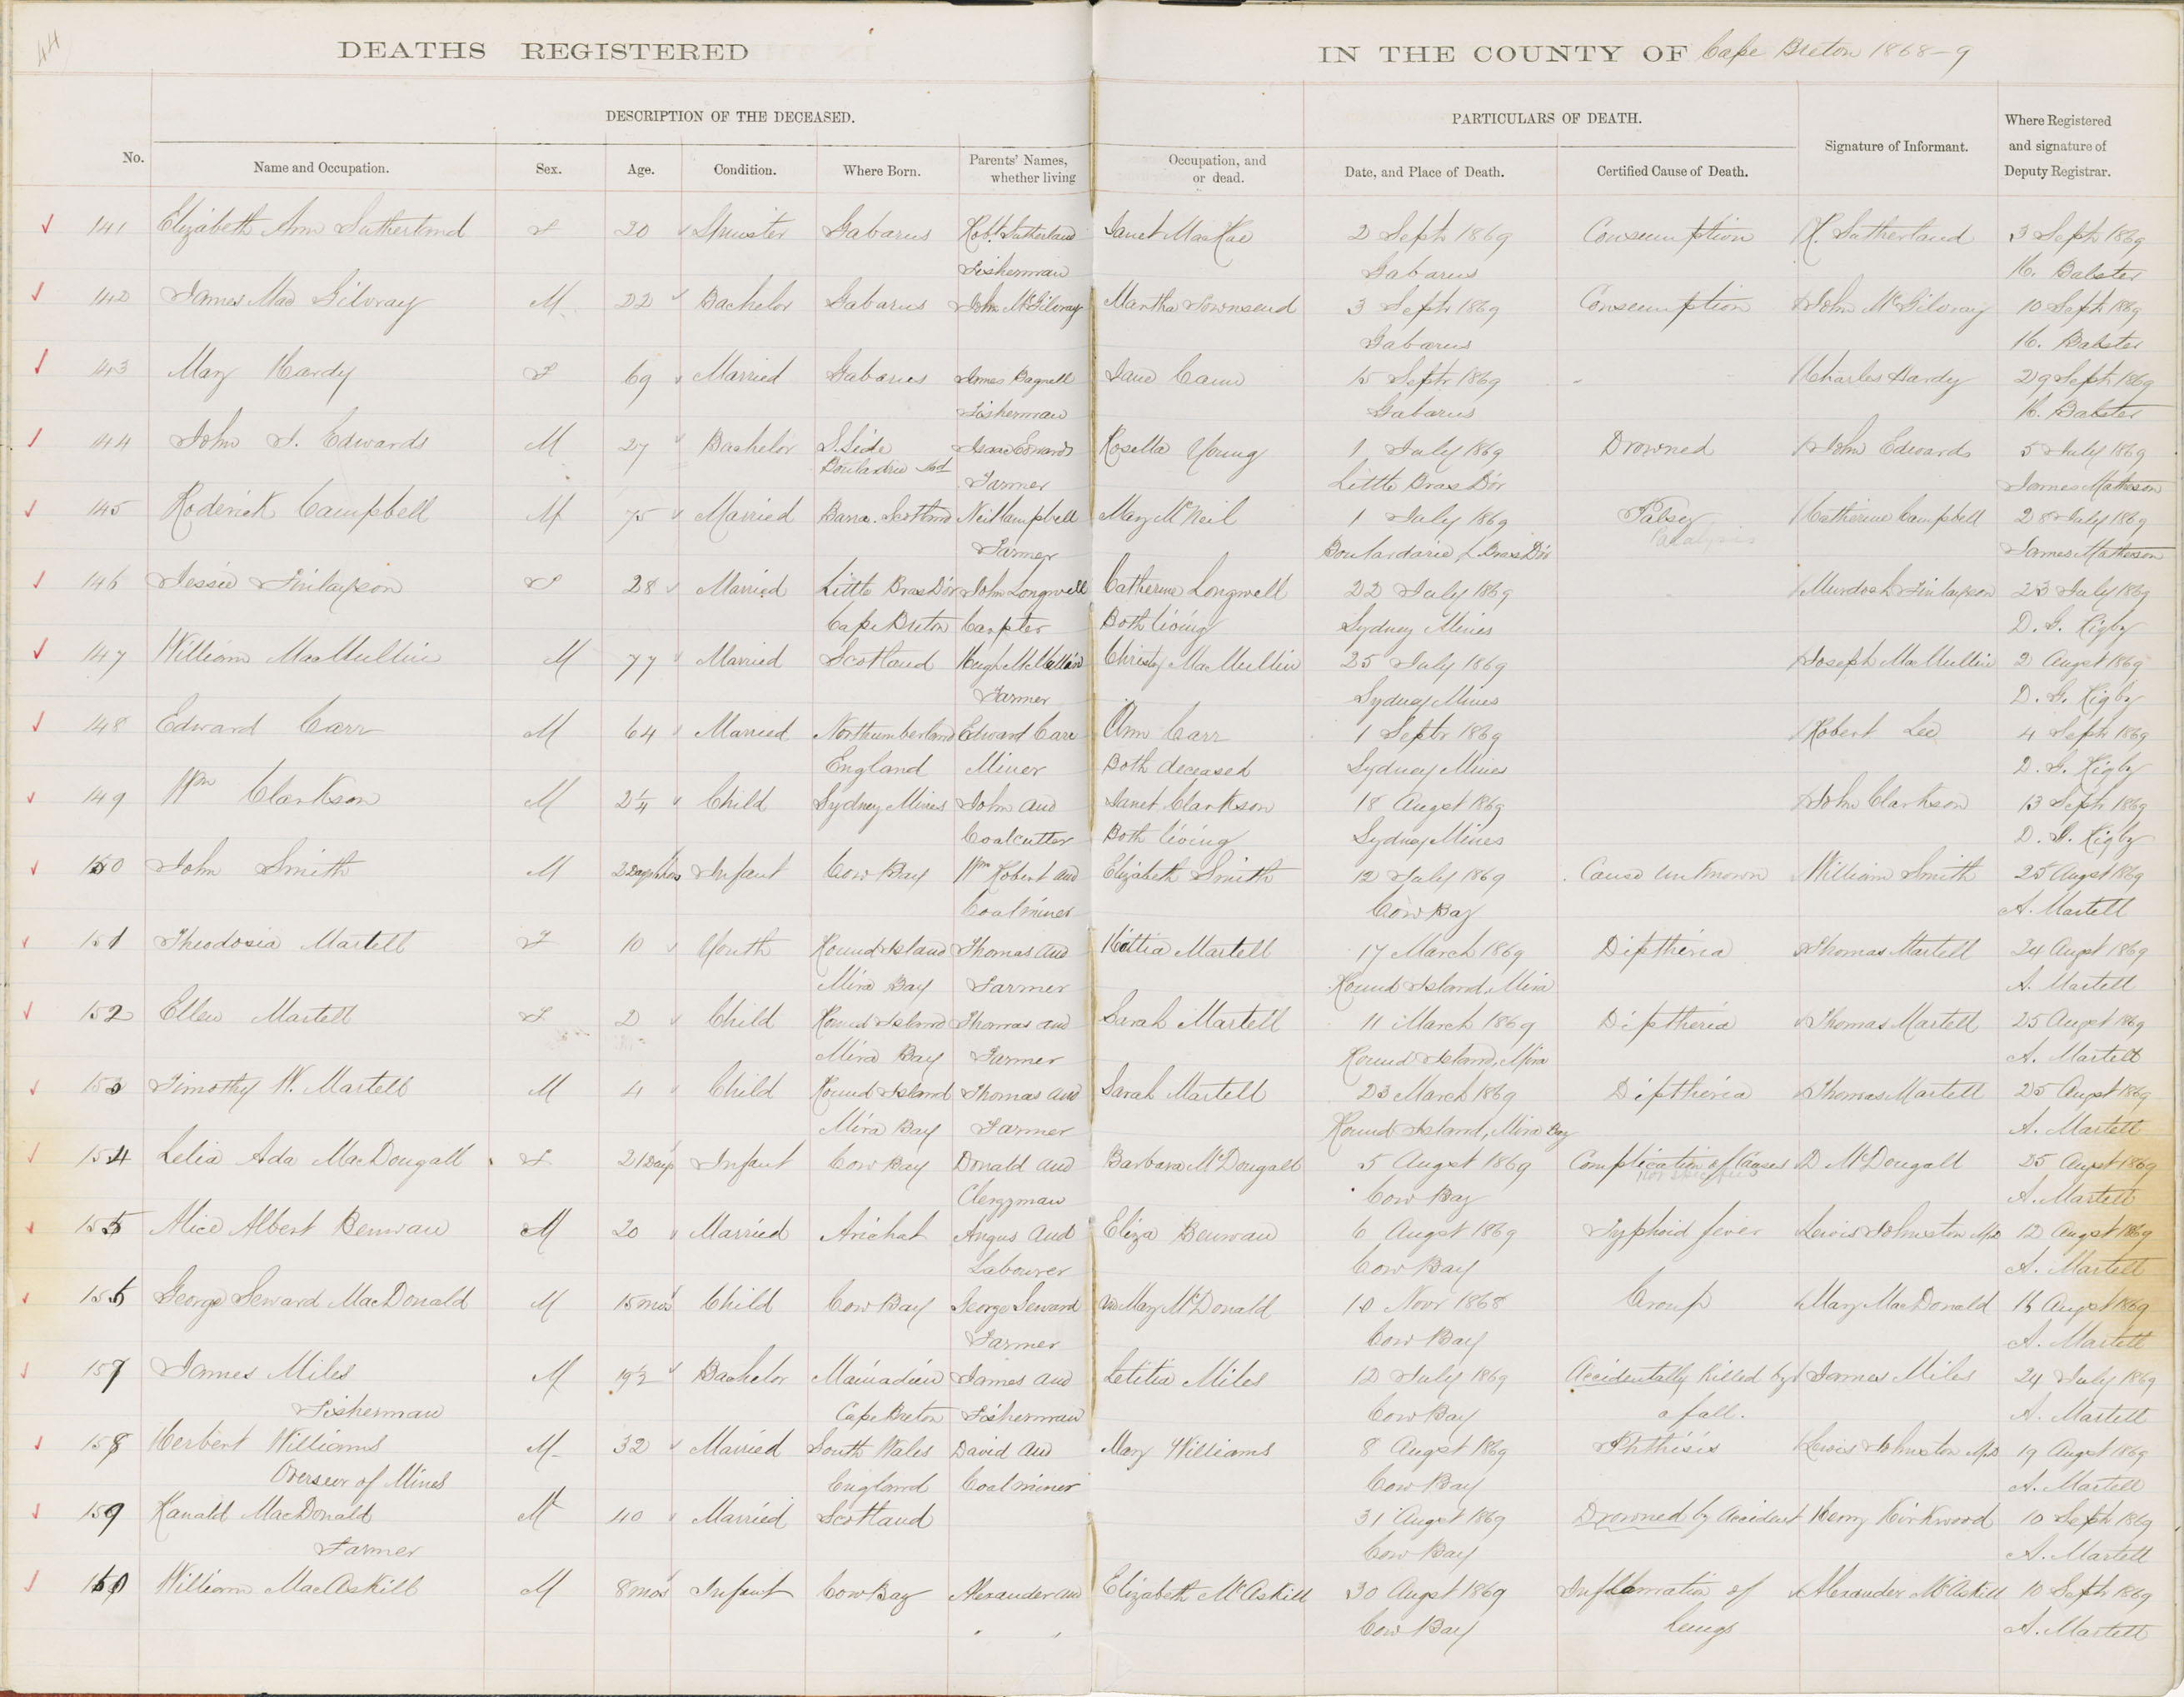 44
DEATHS REGISTERED IN THE COUNTY OF Cape Breton 1868-9
DESCRIPTION OF THE DECEASED. PARTICULARS OF DEATH.
No. Name and Occupation. Sex. Age. Condition. Where Born. Parents' Names, whether living Occupation, and or dead. Date, and Place of Death. Certified Cause of Death. Signature of Informant. Where Registered and signature of Deputy Registrar.
141 Elizabeth Ann Sutherland F 20 Spinster Gabarus Robt. Sutherland Janet MacRae 2 Septr 1869 Consumption R. Sutherland 3 Septr 1869
Fisherman Gabarus H. Babster
142 James Mac Gilvray M 22 Bachelor Gabarus John McGilvray Martha Townsend 3 Septr 1869 Consumption John McGilvray 10 Septr 1869
Gabarus H. Babster
143 Mary Hardy F 69 Married Gabarus James Bagnell Jane Cann 15 Septr 1869 - Charles Hardy 29 Septr 1869
Fisherman Gabarus H. Babster
144 John S. Edwards M 27 Bachelor S. Side Isaac Edwards Rosella Young 1 July 1869 Drowned John Edwards 5 July 1869
Boulardrie Isd Farmer Little Bras D'or James Matheson
145 Roderick Campbell M 75 Married Barra. Scotland Neil Campbell Mary McNeil 1 July 1869 Palsey Catherine Campbell 28 July 1869
Farmer Boulardarie, L Bras D'or Paralysis James Matheson
146 Jessie Finlayson F 28 Married Little Bras D'or John Longwell Catherine Longwell 22 July 1869 Murdoch Finlayson 23 July 1869
Cape Breton Carpter Both living Sydney Mines D. G. Rigby
147 William MacMullin M 77 Married Scotland Hugh McMullin Christy MacMullin 25 July 1869 Joseph MacMullin 2 Augst 1869
Farmer Sydney Mines D. G. Rigby
148 Edward Carr M 64 Married Northumberland Edward Carr Ann Carr 1 Septr 1869 Robert Lee 4 Septr 1869
England Miner Both deceased Sydney Mines D. G. Rigby
149 Wm Clarkson M 2 1/4 Child Sydney Mines John and Janet Clarkson 18 Augst 1869 John Clarkson 13 Septr 1869
Coalcutter Both living Sydney Mines D. G. Rigby
150 John Smith M 2 Days Infant Cow Bay Wm Robert and Elizabeth Smith 12 July 1869 Cause unknown William Smith 25 Augst 1869
Coalminer Cow Bay A. Martell
151 Theodosia Martell F 10 Youth Round Island Thomas and Kittia Martell 17 March 1869 Diptheria Thomas Martell 24 Augst 1869
Mira Bay Farmer Round Island, Mira A. Martell
152 Ellen Martell F 2 Child Round Island Thomas and Sarah Martell 11 March 1869 Diptheria Thomas Martell 25 Augst 1869
Mira Bay Farmer Round Island, Mira A. Martell
153 Timothy W. Martell M 4 Child Round Island Thomas and Sarah Martell 23 March 1869 Diptheria Thomas Martell 25 Augst 1869
Mira Bay Farmer Round Island, Mira Bay A. Martell
154 Lelia Ada MacDougall F 21 Days Infant Cow Bay Donald and Barbara McDougall 5 Augst 1869 Complication of Causes D McDougall 25 Augst 1869
Clergyman Cow Bay not specified A. Martell
155 Alice Albert Benwau M 20 Married Arichat Angus and Eliza Benwau 6 Augst 1869 Typhoid fever Lewis Johnston M.D 12 Augst 1869
Labourer Cow Bay A. Martell
156 George Seward MacDonald M 15 mos Child Cow Bay George Seward and Mary McDonald 10 Novr 1868 Croup Mary MacDonald 16 Augst 1869
Farmer Cow Bay A. Martell
157 James Miles M 19 1/2 Bachelor Mainadieu James and Letitia Miles 12 July 1869 Accidentally killed by James Miles 24 July 1869
Fisherman Cape Breton Fisherman Cow Bay a fall. A. Martell
158 Herbert Williams M 32 Married South Wales David and Mary Williams 8 Augst 1869 Phthisis Lewis Johnston M.D 19 Augst 1869
Overseer of Mines England Coal miner Cow Bay A. Martell
159 Ranald MacDonald M 40 Married Scotland 31 Augst 1869 Drowned by Accident Henry Kirkwood 10 Septr 1869
Farmer Cow Bay A. Martell
160 William MacAskill M 8 mos Infant Cow Bay Alexander and Elizabeth McAskill 30 Augst 1869 Inflamation of Alexander McAskill 10 Septr 1869
Cow Bay lungs A. Martell